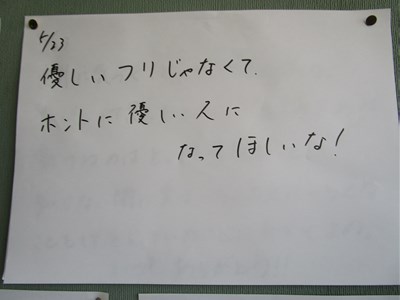 5/23
優しいフリじゃなくて、
ホントに優しい人に
なってほしいな!